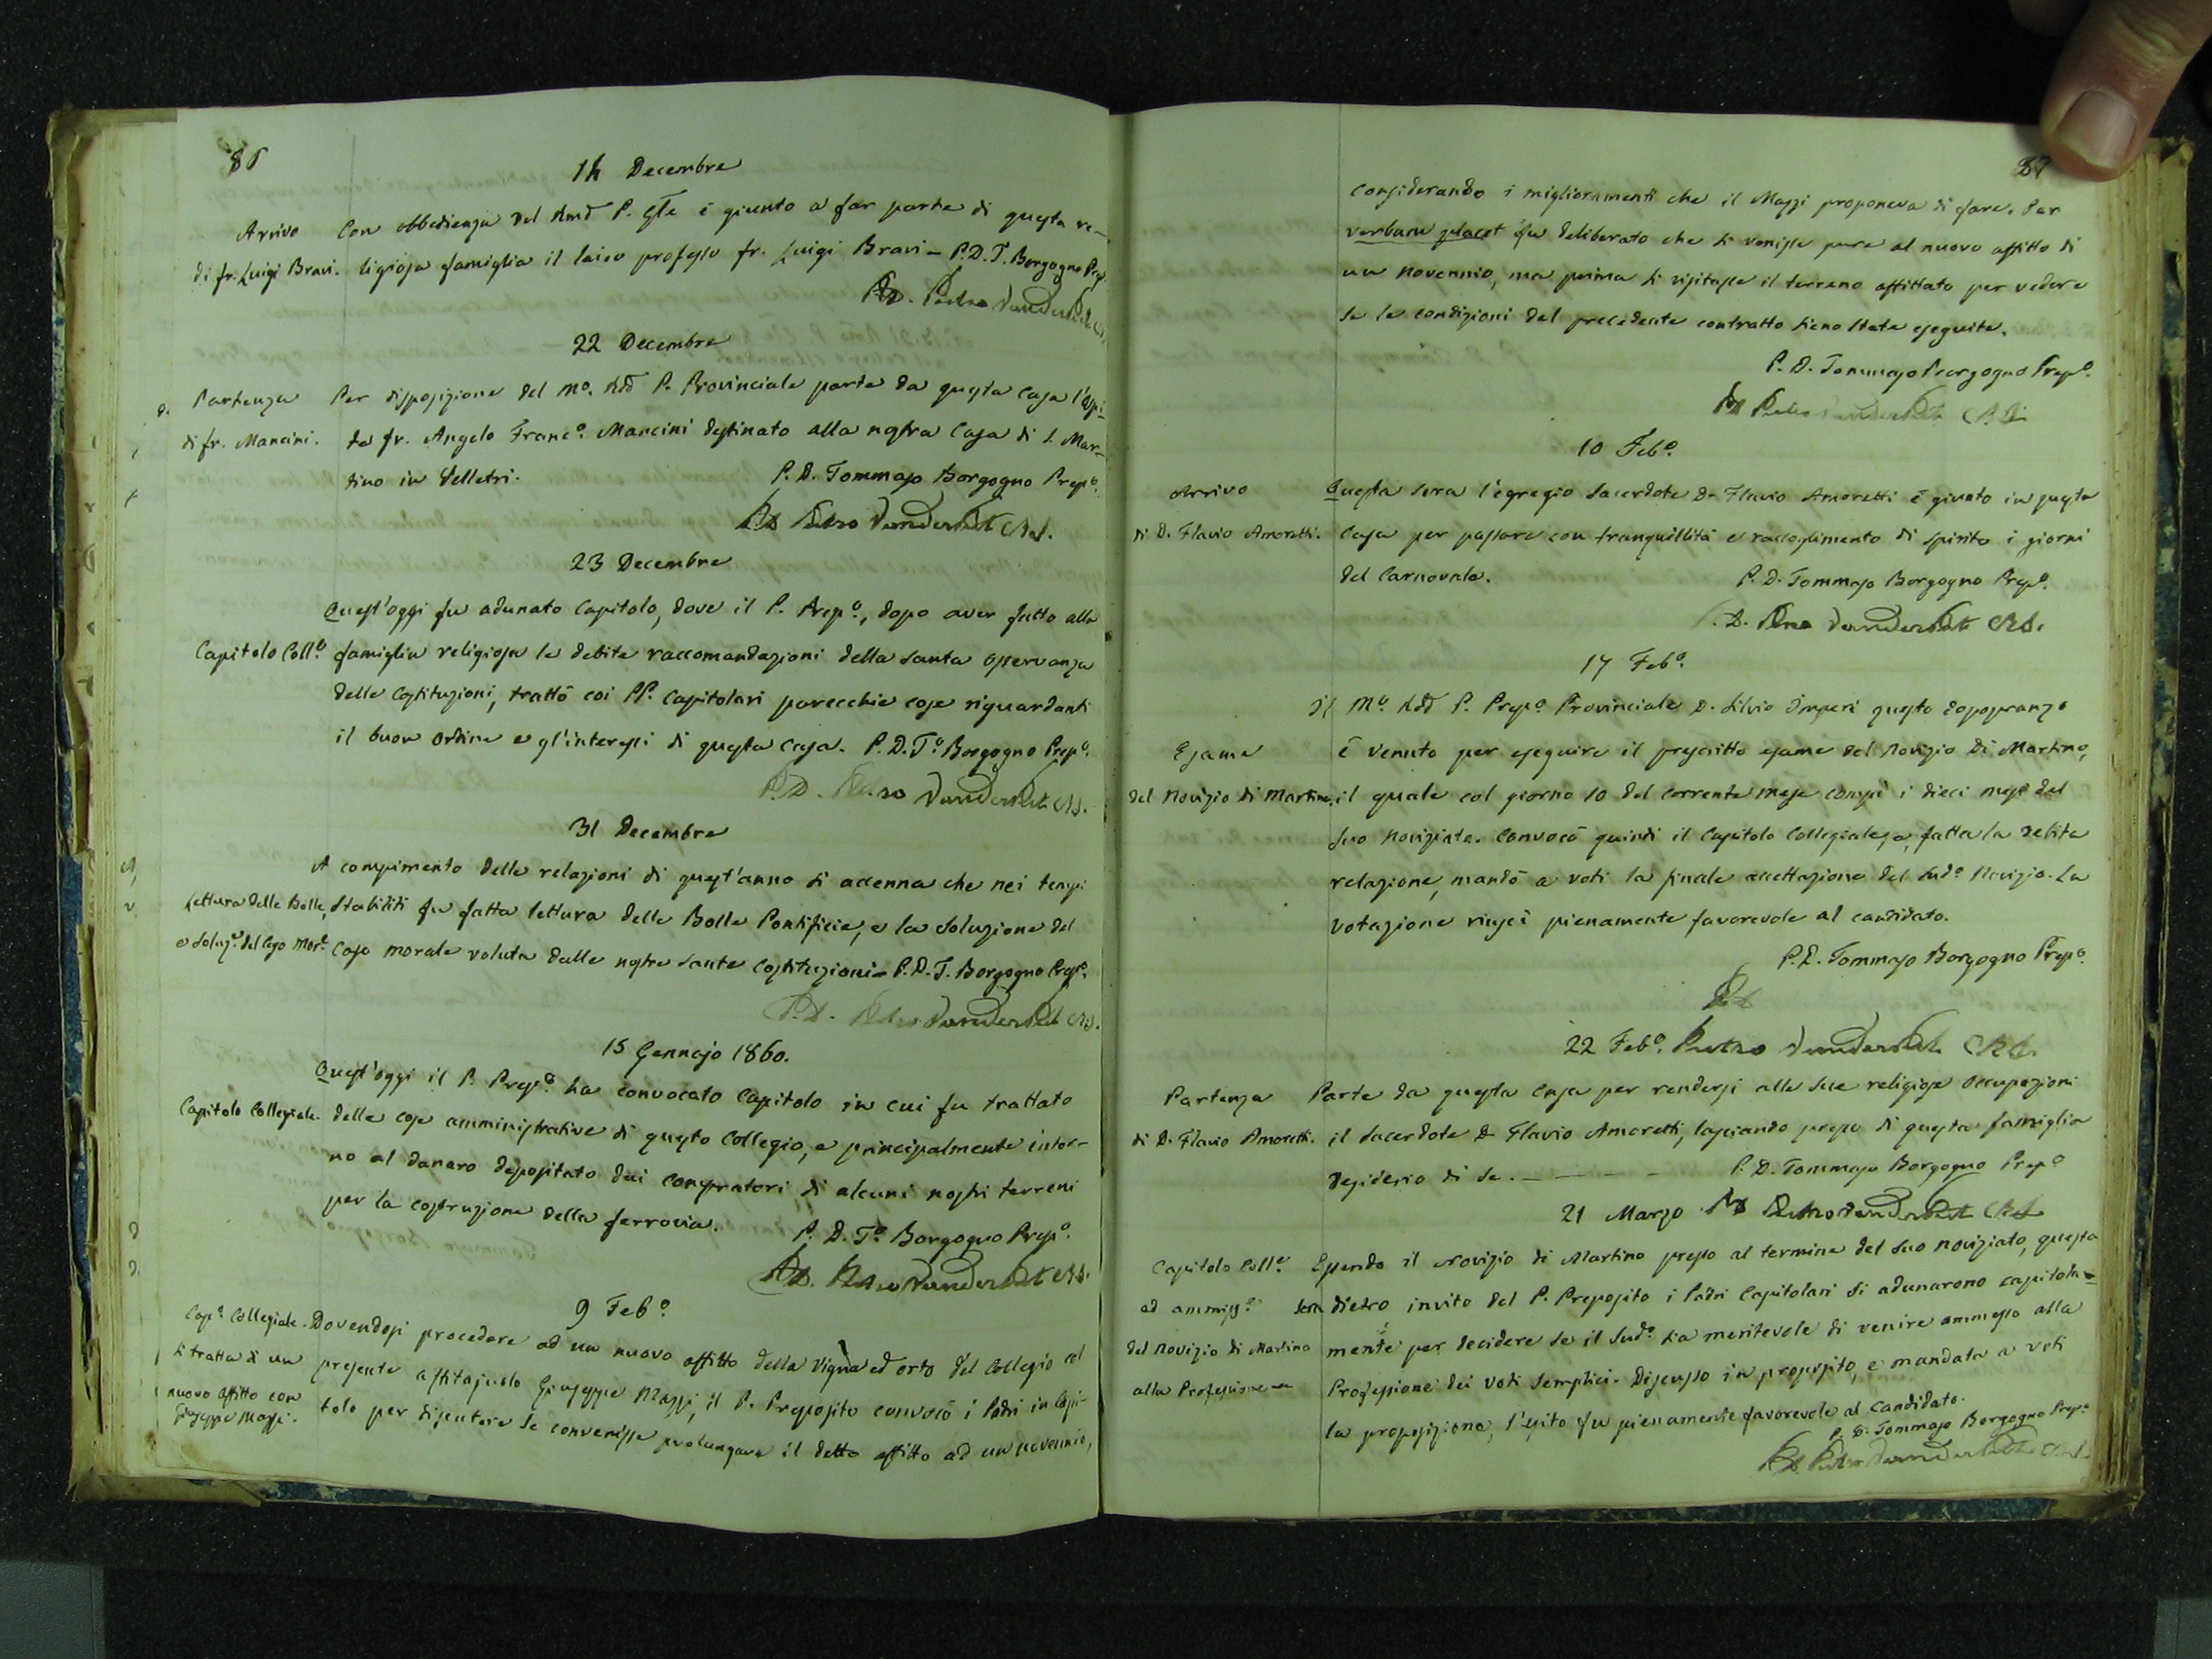 86
14 Decembre
Arrivo Con obbedienza del Rmo P. Gle è giunto a far parte di questa re-
di fr. Luigi Bravi. ligiosa famiglia il laico professo fr. Luigi Bravi - P. D. T. Borgogno Prep.
P. D. Pietro Vanderbek
22 Decembre
Partenza Per disposizione del Mo. Rdo P. Provinciale parte da questa casa l'Ospi-
di fr. Mancini. te fr. Angelo Franco. Mancini destinato alla nostra Casa di S. Mar-
tino in Velletri. P. D. Tommaso Borgogno Prepo.
P. D. Pietro Vanderbek CRS.
23 Decembre
Quest'oggi fu adunato Capitolo, dove il P. Prepo., dopo aver fatto alla
Capitolo Collo. famiglia religiosa le debite raccomandazioni della santa osservanza
delle Costituzioni, trattò coi PP. Capitolari parecchie cose riguardanti
il buon ordine e gl'interessi di questa casa. P. D. To. Borgogno Prepo.
P. D. Pietro Vanderbek CRS.
31 Decembre
A compimento delle relazioni di quest'anno si accenna che nei tempi
Lettura delle Bolle, stabiliti fu fatta lettura delle Bolle Pontificie, e la soluzione del
e soluze. del Caso More. caso morale voluta dalle nostre sante Costituzioni - P. D. T. Borgogno Prepo.
P. D. Pietro Vanderbek CRS.
15 Gennajo 1860.
Quest'oggi il P. Prepo. ha convocato Capitolo in cui fu trattato
Capitolo Collegiale. delle cose amministrative di questo Collegio, e principalmente intor-
no al danaro depositato dai compratori di alcuni nostri terreni
per la costruzione della ferrovia. P. D. To. Borgogno Prepo.
P. D. Pietro Vanderbek CRS.
9 Febo.
Capo. Collegiale. Dovendosi procedere ad un nuovo affitto della Vigna ed orto del Collegio col
Si tratta di un presente affittajuolo Giuseppe Mazzi, il P. Preposito convocò i Padri in Capi-
nuovo affitto con tolo per discutere se convenisse prolungare il detto affitto ad un novennio,
Giuseppe Mazzi.
87
considerando i miglioramenti che il Mazzi proponeva di fare. Per
verbum placet fu deliberato che si venisse pure al nuovo affitto di
un novennio, ma prima si visitasse il terreno affittato per vedere
se le condizioni del precedente contratto sieno state eseguite.
P. D. Tommaso Borgogno Prepo.
P. D. Pietro Vanderbek CRS
10 Febo.
Arrivo Questa sera l'egregio Sacerdote D. Flavio Amoretti è giunto in questa
di D. Flavio Amoretti. Casa per passare con tranquillità e raccoglimento di spirito i giorni
del Carnovale. P. D. Tommaso Borgogno Prepo.
P. D. Pietro Vanderbek CRS.
17 Febo.
Il Mo. Rdo P. Prepo. Provinciale D. Silvio Imperi questo dopopranzo
Esame è venuto per eseguire il prescritto esame del Novizio Di Martino,
del Novizio Di Martino. il quale col giorno 10 del corrente mese compì i dieci mesi del
suo Noviziato. Convocò quindi il Capitolo Collegiale, e, fatta la debita
relazione, mandò a voti la finale accettazione del sudo. Novizio. La
votazione riuscì pienamente favorevole al candidato.
P. D. Tommaso Borgogno Prepo.
P. D.
22 Febo. Pietro Vanderbek CRS.
Partenza Parte da questa Casa per rendersi alle sue religiose occupazioni
di D. Flavio Amoretti. il Sacerdote D. Flavio Amoretti, lasciando presso di questa famiglia
desiderio di se. - - - P. D. Tommaso Borgogno Prepo
21 Marzo P. D. Pietro Vanderbek CRS
Capitolo Collo. Essendo il Novizio di Martino presso al termine del suo noviziato, questa
ad ammisse. sera dietro invito del P. Preposito i Padri Capitolari si adunarono capitolar-
del Novizio di Martino mente per decidere se il sudo. sia meritevole di venire ammesso alla
alla Professione Professione dei voti semplici. Discusso in proposito, e mandata a voti
la proposizione, l'esito fu pienamente favorevole al candidato.
P. D. Tommaso Borgogno Prepo.
P. D. Pietro Vanderbek CRS.